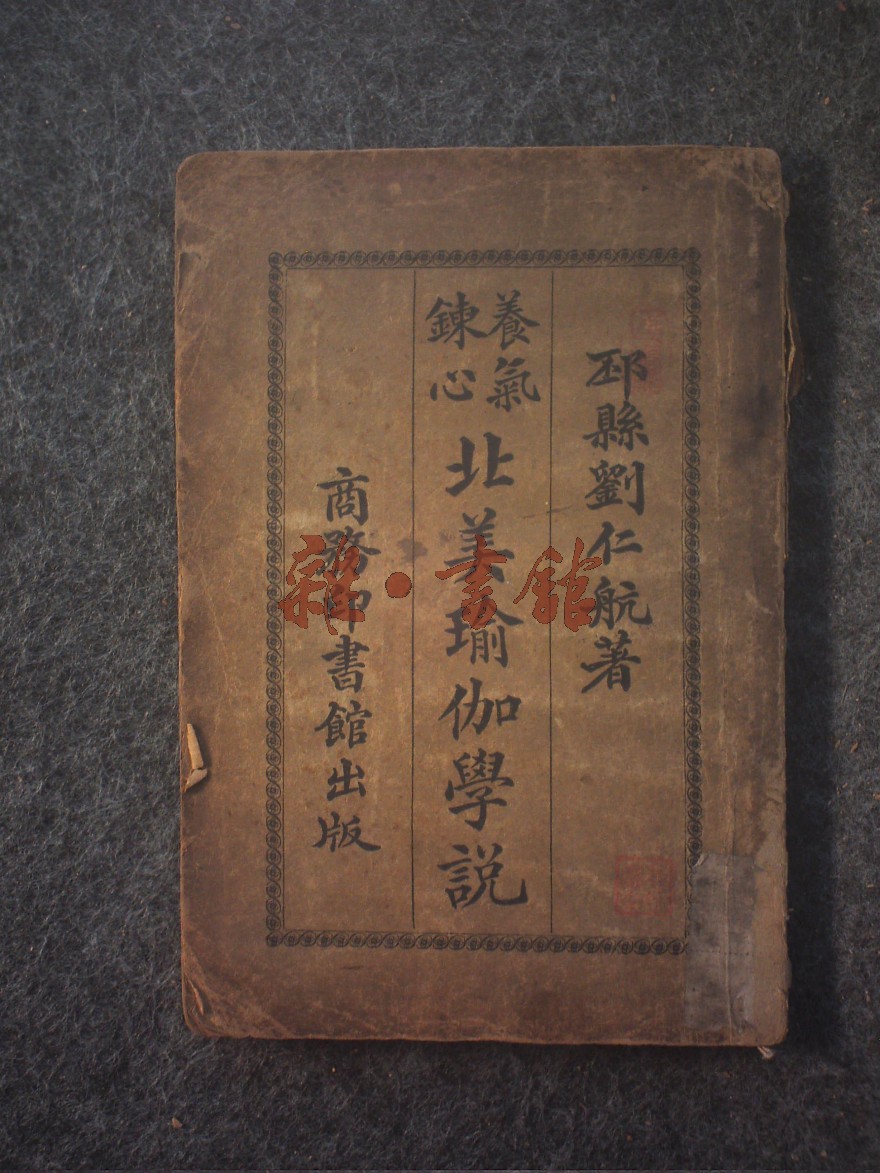 邳縣劉仁航著
養氣
鍊心
北美瑜伽學説
商務印書館出版
雜·書館